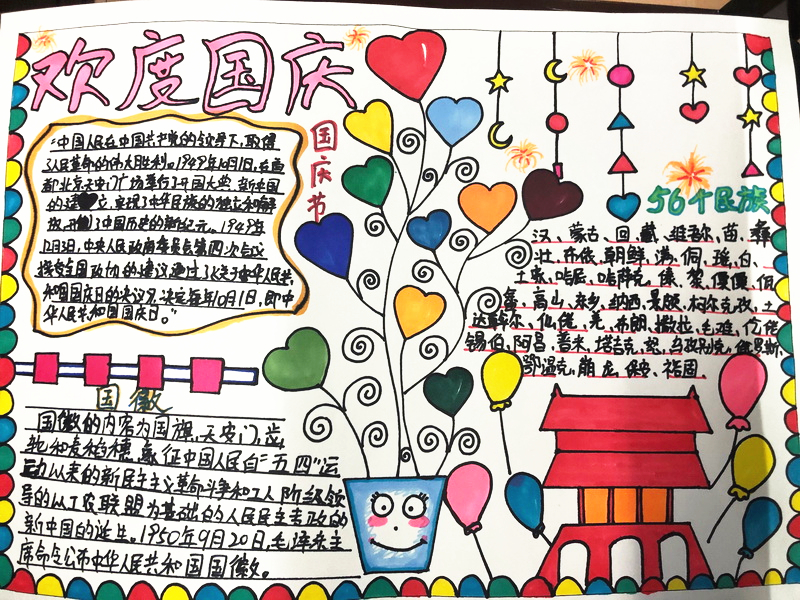 欢度国庆
国庆节
"中国人民在中国共产党的领导下,取得
了人民革命的伟大胜利。1949年10月1日,在首
都北京天安门广场举行了开国大典,新中国
的建立,实现了中华民族的独立和解
放,开了中国历史的新纪元。1949年
12月3日,中央人民政府委员会第四次会议
接受全国政协的建议通过了《关于中华人民共
和国国庆日的决议》,决定每年10月1日,即中
华人民共和国国庆日。"
56个民族
汉、蒙古、回、藏、维吾尔、苗、彝
壮、布依、朝鲜、满、侗、瑶、白、
土家、哈尼、哈萨克、傣、黎、傈僳、佤
畲、高山、东乡、纳西、景颇、柯尔克孜、土
达斡尔、仫佬、羌、布朗、撒拉、毛难、仡佬
锡伯、阿昌、普米、塔吉克、怒、乌孜别克、俄罗斯
鄂温克、崩龙、保安、裕固
国徽
国徽的内容为国旗,天安门,齿
轮和麦稻穗,象征中国人民自"五四"运
动以来的新民主主义革命斗争和工人阶级领
导的以工农联盟为基础的人民民主专政的
新中国的诞生。1950年9月20日,毛泽东主
席命令公布中华人民共和国国徽。